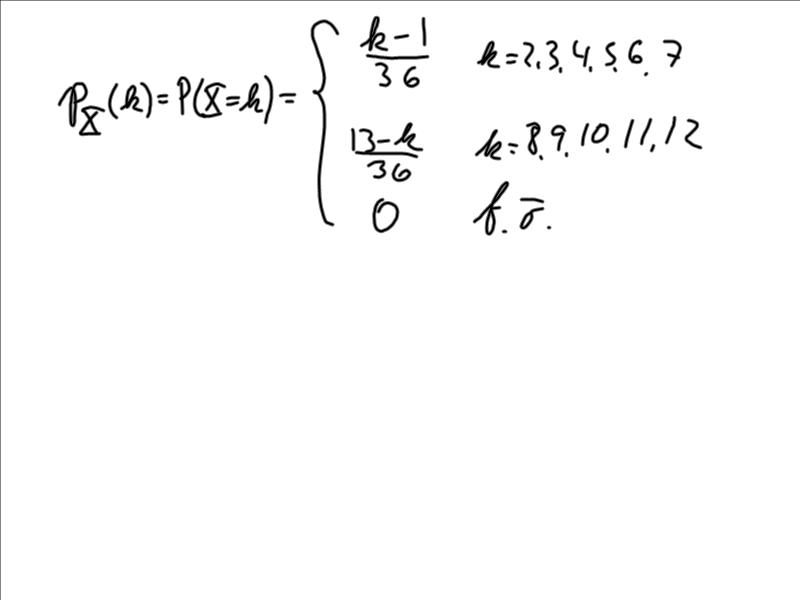 p_X(k) = P(X=k) = { (k-1)/36   k=2,3,4,5,6,7
(13-k)/36   k=8,9,10,11,12
0   f.ö.